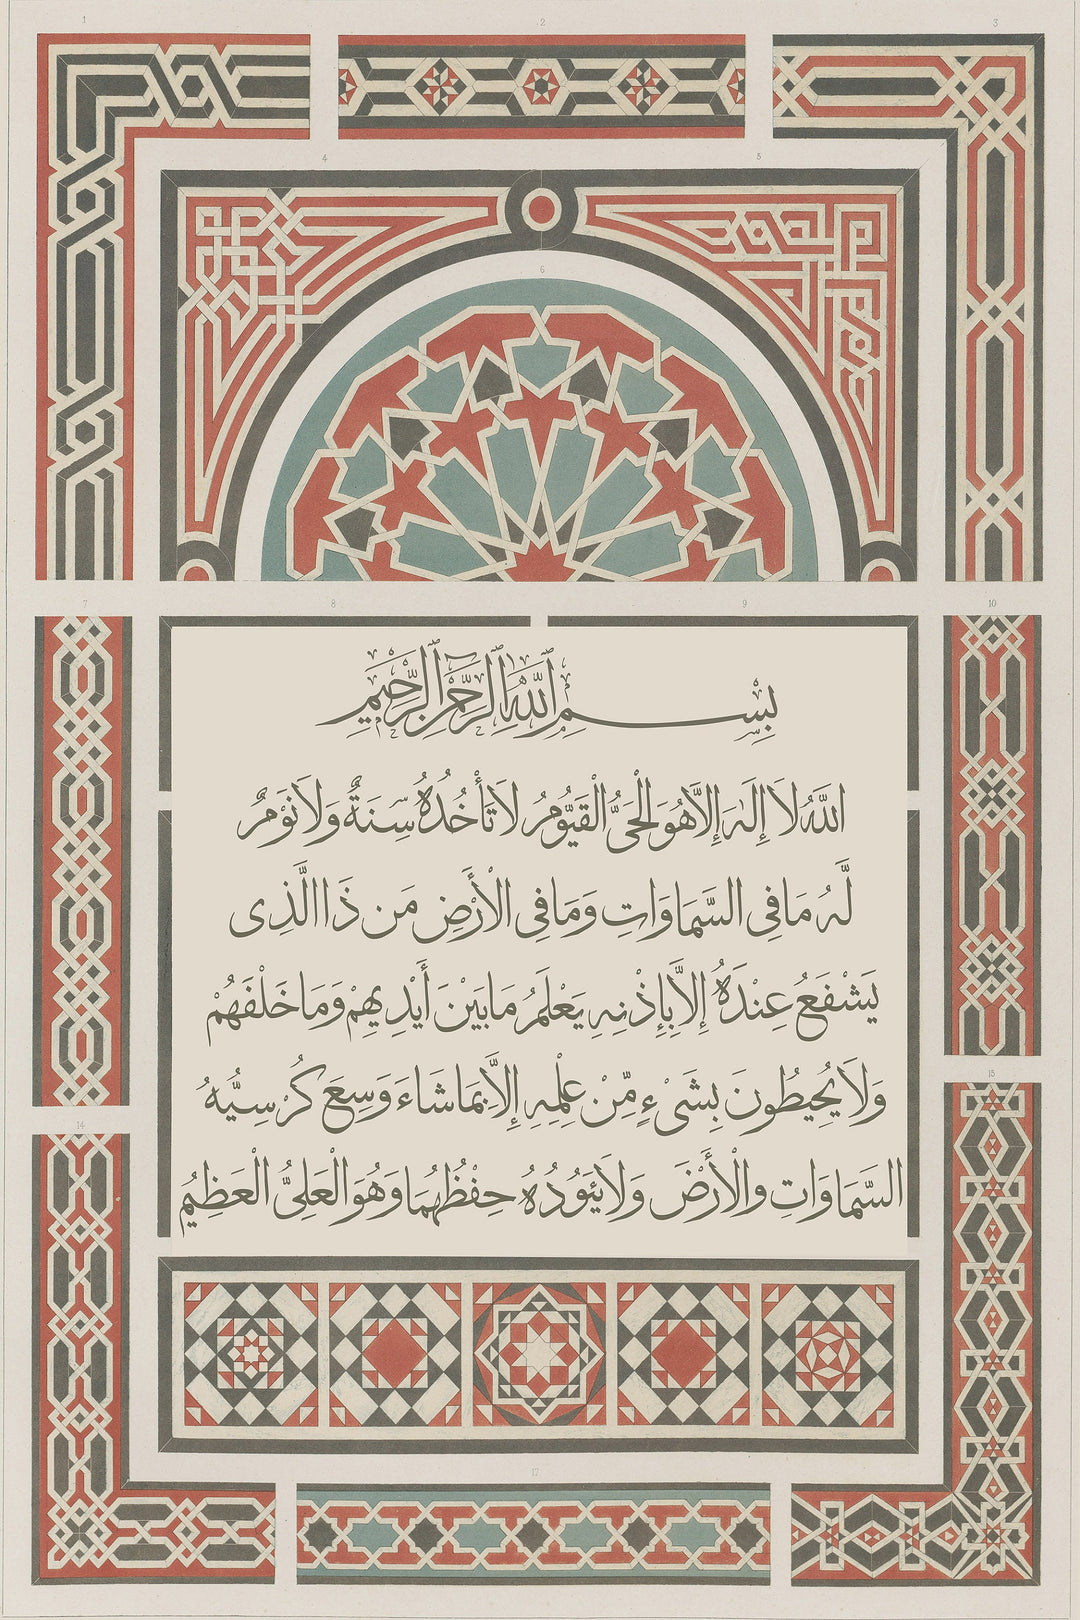 1
2
3
4
5
6
7
8
9
10
بِسْمِ اللَّهِ الرَّحْمَٰنِ الرَّحِيمِ
اللَّهُ لَا إِلَٰهَ إِلَّا هُوَ الْحَىُّ الْقَيُّومُ لَا تَأْخُذُهُ سِنَةٌ وَلَا نَوْمٌ
لَّهُ مَا فِى السَّمَاوَاتِ وَمَا فِى الْأَرْضِ مَن ذَا الَّذِى
يَشْفَعُ عِنْدَهُ إِلَّا بِإِذْنِهِ يَعْلَمُ مَا بَيْنَ أَيْدِيهِمْ وَمَا خَلْفَهُمْ
وَلَا يُحِيطُونَ بِشَىْءٍ مِّنْ عِلْمِهِ إِلَّا بِمَا شَاءَ وَسِعَ كُرْسِيُّهُ
السَّمَاوَاتِ والْأَرْضَ وَلَا يَئُودُهُ حِفْظُهُمَا وَهُوَ الْعَلِىُّ الْعَظِيمُ
14
15
17